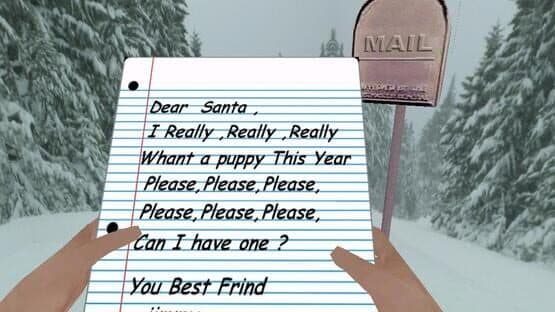 MAIL
Dear Santa ,
I Really ,Really ,Really
Whant a puppy This Year
Please,Please,Please,
Please,Please,Please,
Can I have one ?
You Best Frind